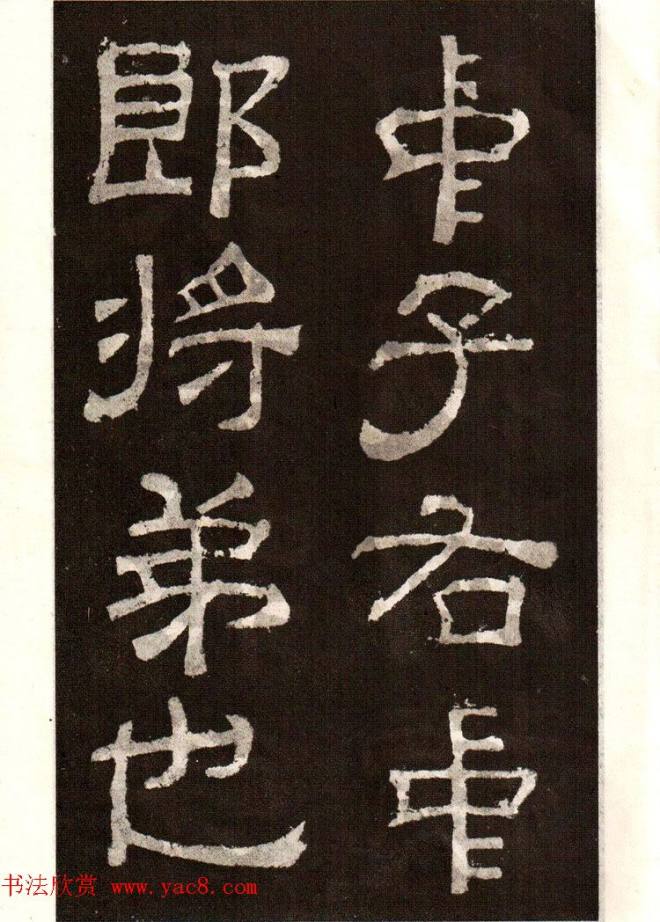 中子右中
郎將弟也
书法欣赏 www.yac8.com